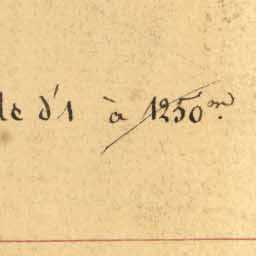 le d'1 à 1250 m.